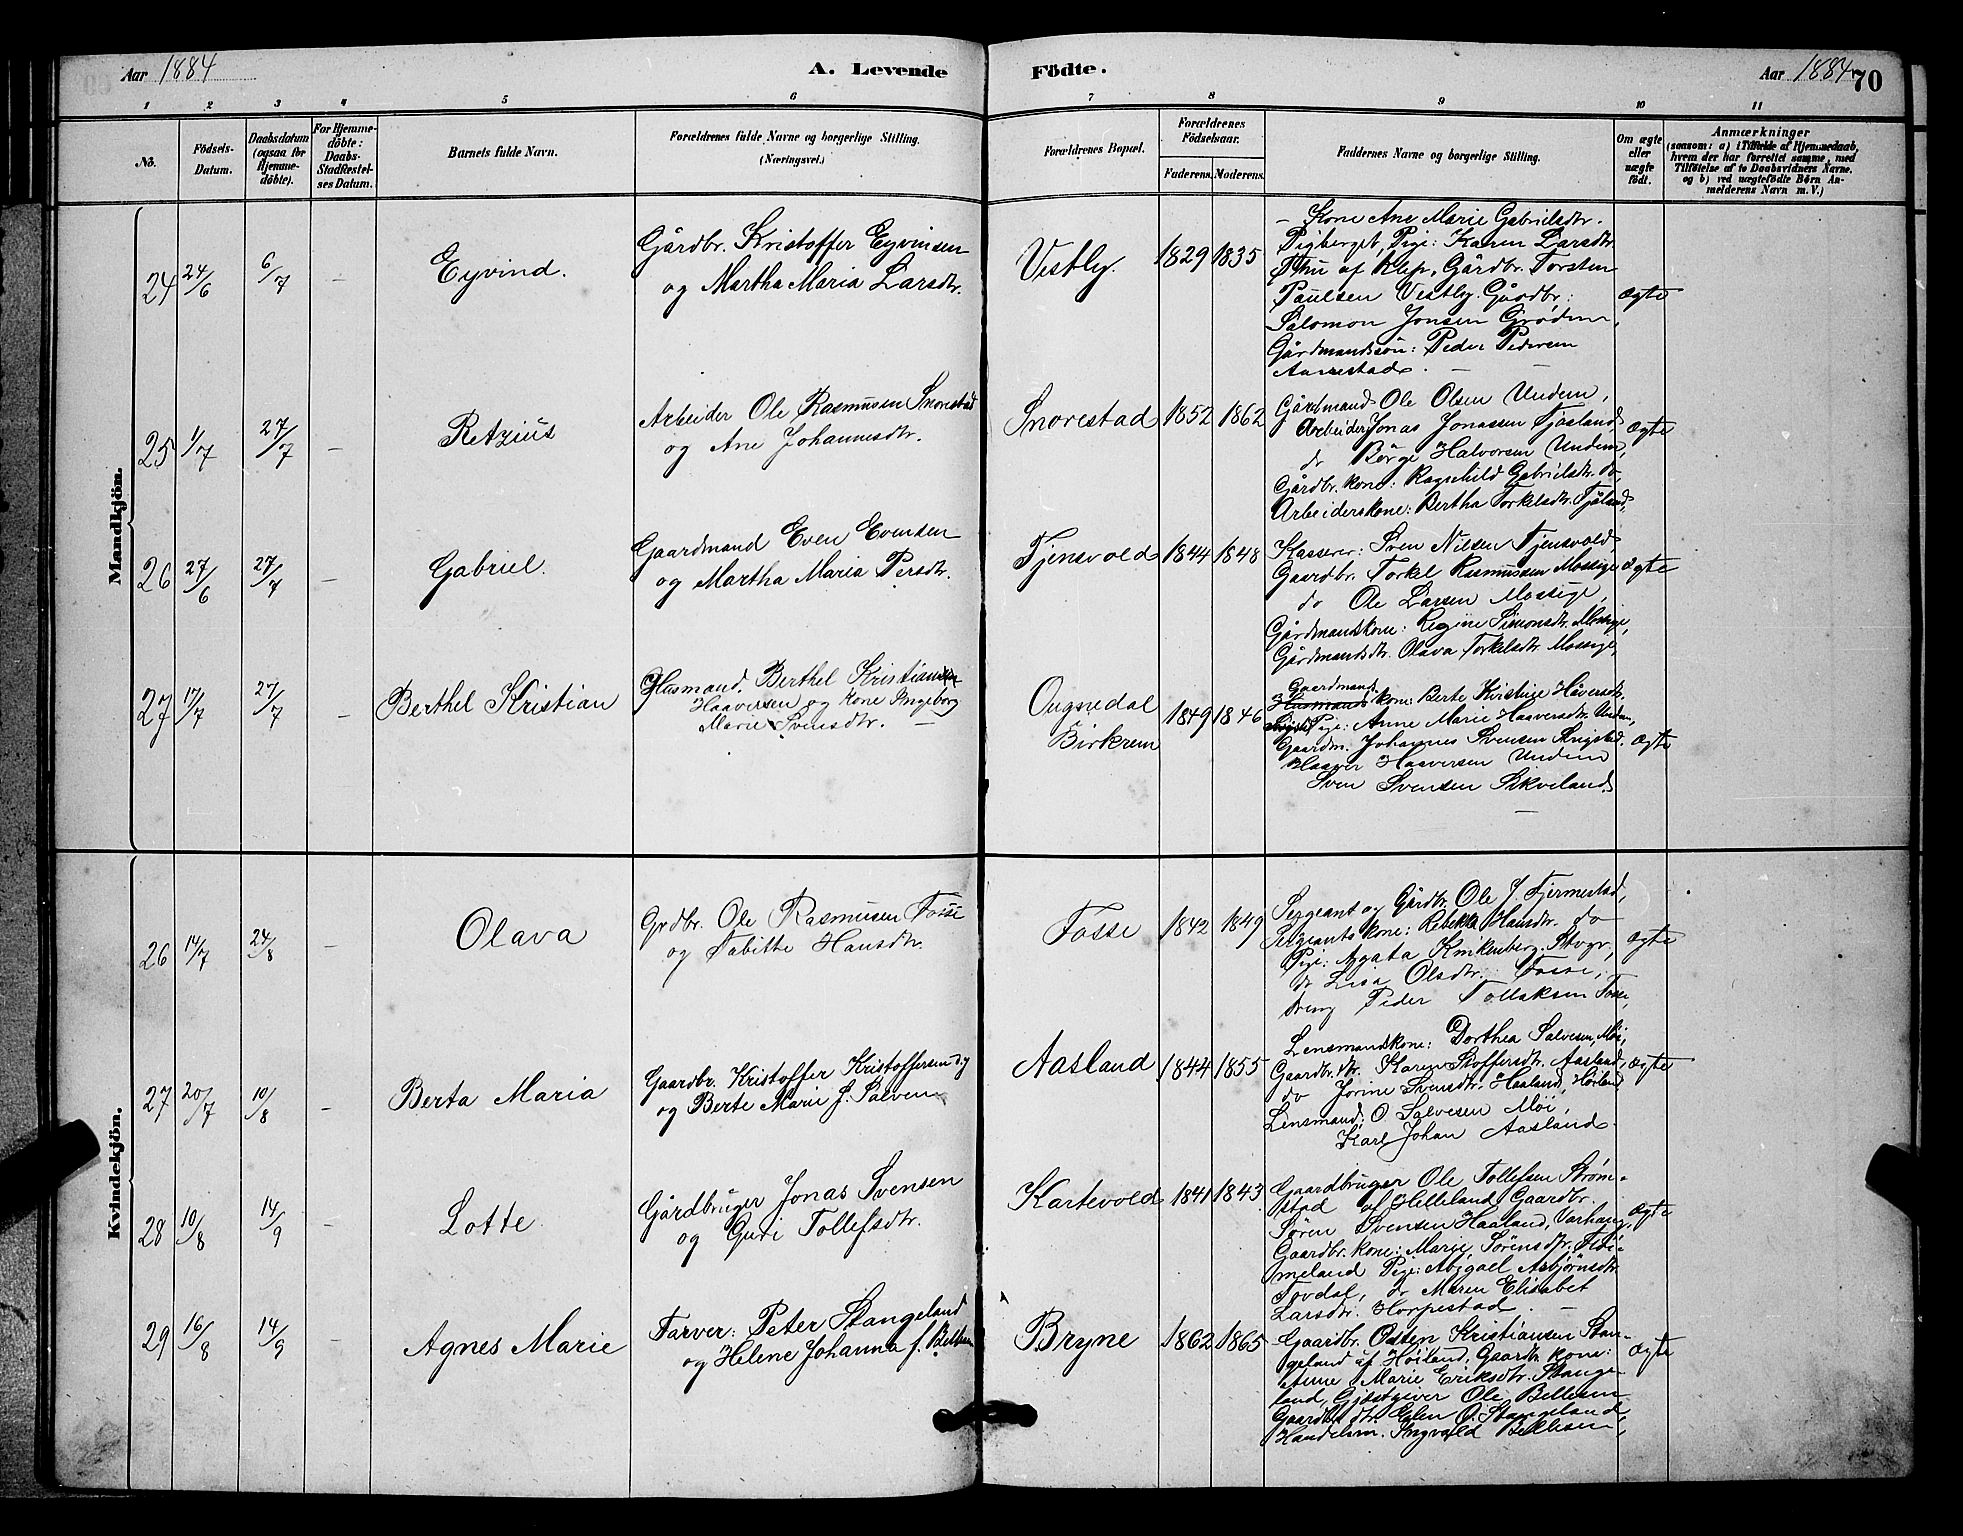 Aar 1884
A. Levende
Födte.
Aar 1884
70
1 2 3 4 5 6 7 8 9 10 11
No.
Födsels-
Datum.
Daabsdatum
(ogsaa for
Hjemme-
döbte).
For Hjemme-
döbte:
Daabs-
Stadfæstel-
ses Datum.
Barnets fulde Navn.
Forældrenes fulde Navne og borgerlige Stilling.
(Næringsvei.)
Forældrenes Bopæl.
Forældrenes
Födselsaar.
Faderens. Moderens.
Faddernes Navne og borgerlige Stilling.
Om ægte
eller
uægte
födt.
Anmærkninger
(saasom: a) i Tilfælde af Hjemmedaab,
hvem der har forrettet samme, med
Tilföielse af to Daabsvidners Navne.
og b) ved uægtefödte Börn An-
melderens Navn m. V.)
Mandkjön.
24 24/6 6/7 – Eyvind.
Gårdbr. Kristoffer Eyvindsen
og Martha Maria Larsdtr.
Vestly. 1829 1835
– Kone Ane Marie Gabrielsdtr.
Pigberget, Pige: Karen Larsdtr.
Thu af Klep, Gårdbr. Torsten
Paulsen Vestly. Gårdbr:
Salomon Jonsen Grødem,
Gårdmandssøn: Peder Pedersen
Aarrestad. –
ægte
25 1/7 27/7 – Retzius
Arbeider Ole Rasmussen Snorestad
og Ane Johannesdtr.
Snorestad 1852 1862
Gårdmand Ole Olsen Undem,
Arbeider Jonas Jonassen Tjøsland
do Børge Halvorsen Undem,
Gårdbr. kone: Ragnhild Gabrielsdtr. do,
Arbeiderskone: Bertha Torkelsdtr. Tjåland,
ægte
26 27/6 27/7 – Gabriel.
Gaardmand Even Evensen
og Martha Maria Persdtr.
Tjensvold 1844 1848
Kasserer: Sven Nilsen Tjensvold,
Gaardbr. Torkel Rasmussen Mossige
do Ole Larsen Mossige,
Gårdmandskone: Regine Simonsdtr. Mossige,
Gårdmandsdtr. Olava Torkelsdtr. Mossige,
ægte
27 17/7 27/7 – Berthel Kristian
Husmand. Berthel Kristian
Haaversen og Kone Ingeborg
Marie Svensdtr. –
Ougnedal
Birkrem
1849 1846
Gaardmands
Husmands kone: Berte Kristine Håversdtr.
Pige: Anne Marie Haaversdtr. Undem,
Gaardm. Johannes Svensen Anigstad.
Haaver Haaversen Undem
Sven Svensen Sikveland
–
ægte
Kvindekjön.
26 14/7 24/8 – Olava
Grdbr. Ole Rasmussen Fosse
og Tabitte Hansdtr.
Fosse 1842 1849
Sergeant og Gårdbr. Ole J. Fjermestad,
Sergeants kone: Rebekka Hansdtr. do
Pige: Agata Knikenberg. Stvgr,
do Lisa Olsdtr. Fosse,
Dreng Peder Tollaksen Fosse,
ægte
27 20/7 10/8 – Berta Maria
Gaardbr. Kristoffer Kristoffersen
og Berte Marie f. Salvesen
Aasland 1844 1855
Lensmandskone: Dorthea Salvesen, Møi,
Gaardbr. dtr. Karen Stoffersdtr. Aasland,
do Jorine Svensdtr. Haaland, Høiland
Lensmand: O Salvesen Møi,
Karl Johan Aasland.
ægte
28 10/8 14/9 – Lotte
Gårdbruger Jonas Svensen
og Guri Tollefsdtr.
Kartevold 1841 1843
Gaardbruger Ole Tollefsen Strøm-
stad af Helleland, Gaardbr.
Søren Svensen Haaland, Varhaug,
Gaardbr. kone: Marie Sørensdtr,
meland Pige: Abigael Asbjørnsdtr.
Tovdal, do Maren Elisabet
Larsdtr. Horpestad. –
ægte
29 16/8 14/9 – Agnes Marie
Farver: Peter Stangeland
og Helene Johanna f. Bellesen
Bryne 1862 1865
Gaardbr. Osten Kristiansen Stan-
geland af Høiland, Gaardbr. kone:
Anne Marie Eriksdtr. Stange-
land, Gjæstgiver Ole Bellesen
Gaardbr. dtr. Elen O. Stangeland,
Handelsm. Ingvald Bellesen,
ægte